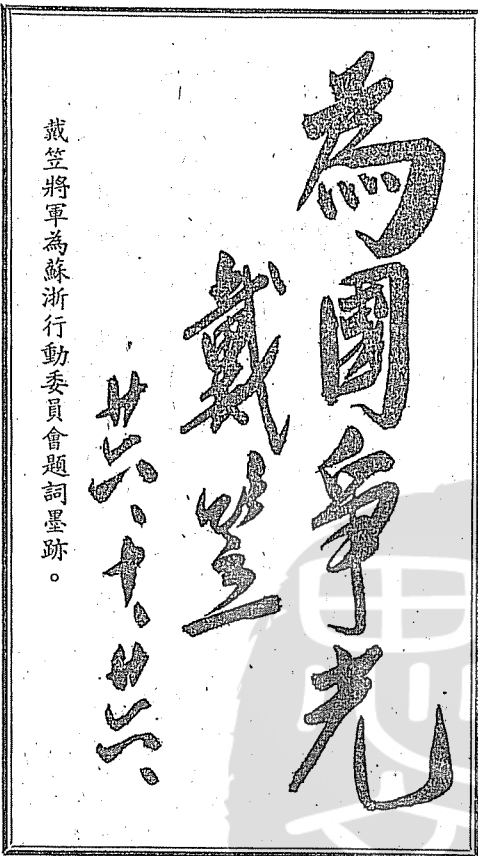 為國爭光
戴笠
廿六、十、廿六、
戴笠將軍為蘇浙行動委員會題詞墨跡。